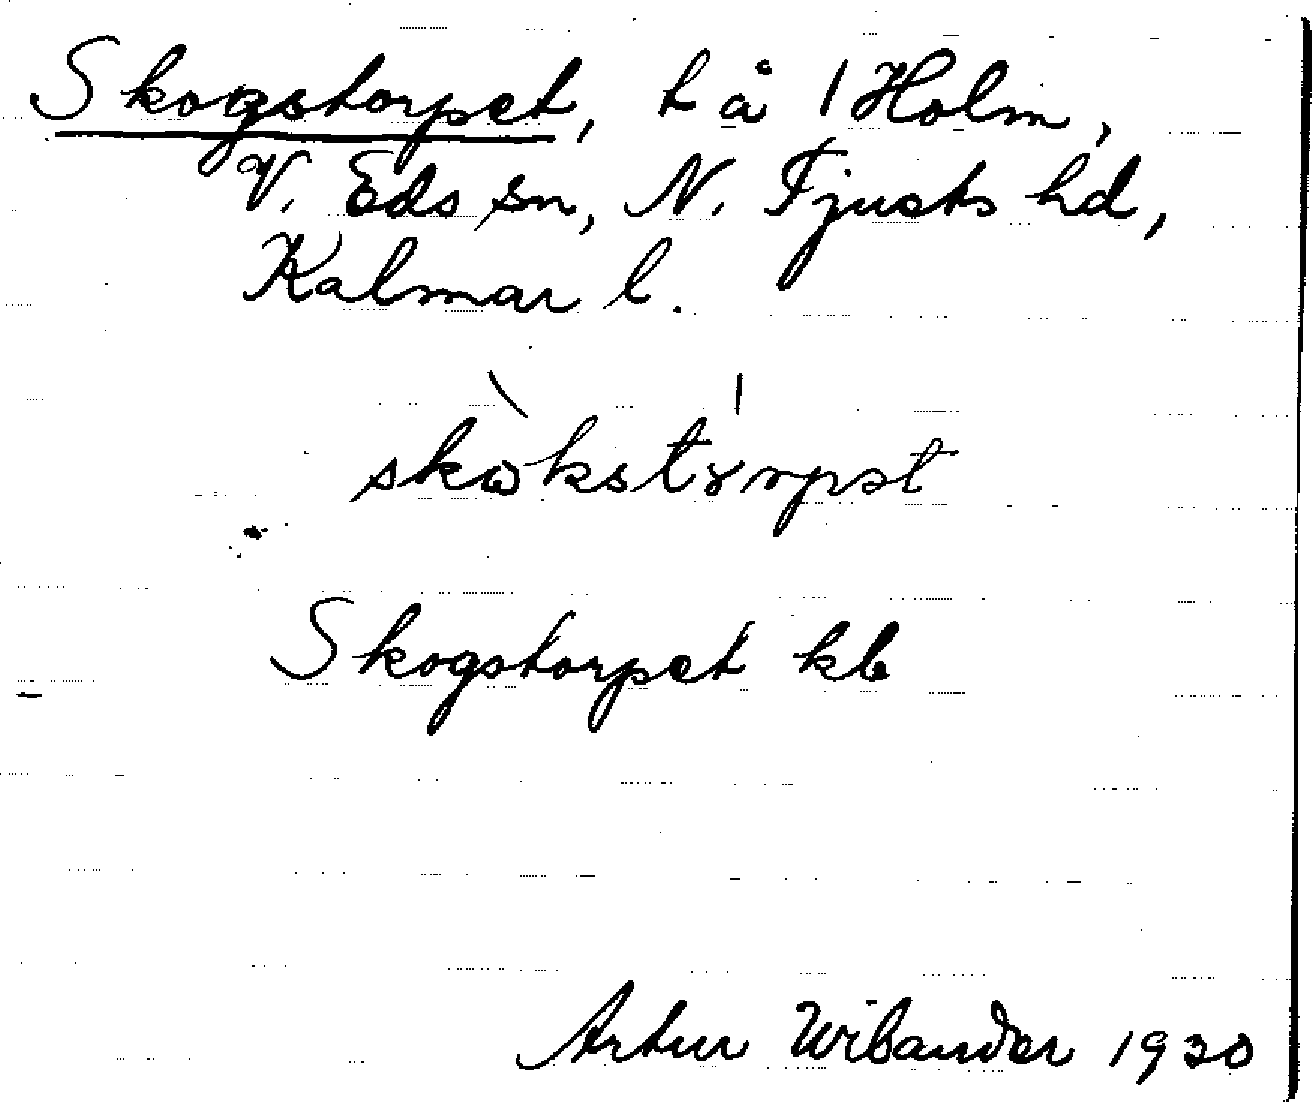 Skogstorpet, t å 1 Holm,
V. Eds sn, N. Tjusts hd,
Kalmar l.
Skogstorpet kb
Artur Wilander 1930